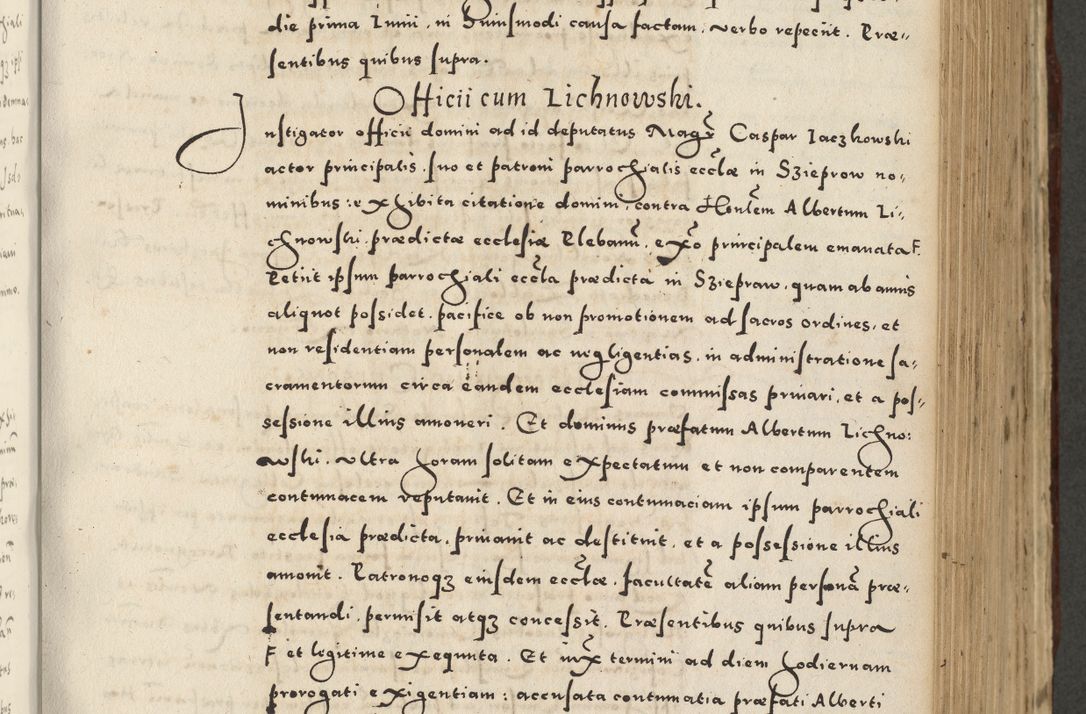 die prima Iunii, in huiusmodi causa factam, verbo repeciit. Præ-
sentibus quibus supra.
Officii cum Lichnowski.
Instigator officii domini ad id deputatus Magr Caspar Iaczkowski
actor principalis, suo et patroni parrochialis ecclæ in Szieprow no-
minibus: exhibita citatione domini, contra Honlem Albertum Li-
chnowski, prædictæ ecclesiæ Plebanū, exo principalem emanata F.
Petiit ipsum parrochiali eccla prædicta in Sziepraw, quam ab annis
aliquot possidet, pacifice ob non promotionem ad sacros ordines, et
non residentiam personalem ac negligentias, in administratione sa-
cramentorum circa eandem ecclesiam commissas priuari, et a pos-
sessione illius amoueri. Et dominus præfatum Albertum Lichno:
wski, vltra horam solitam expectatum et non comparentem
contumacem reputauit. Et in eius contumaciam ipsum parrochiali
ecclesia prædicta, priuauit ac destituit, et a possessione illius
amouit. Patronoqz eiusdem ecclæ, facultatē aliam personā præ-
sentandi, permisit atqz concessit. Præsentibus quibus supra
F et legitime exequuta. Et iux termini ad diem hodiernam
prorogati exigentiam: accusata contumatia præfati Alberti